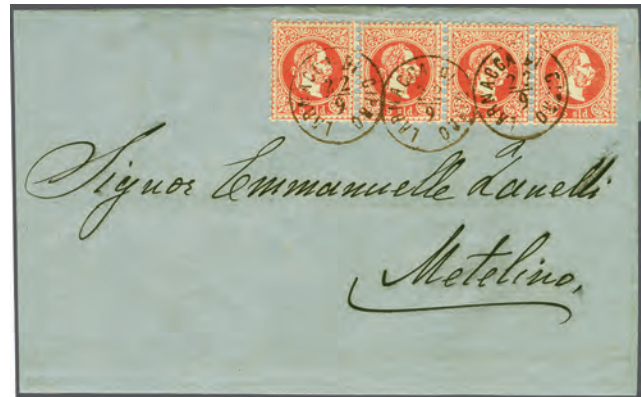 LARNACCA DI CIPRO
22
9
LARNACCA DI CIPRO
9
LARNACCA DI CIPRO
22
9
Signor Emmanuelle Zanelli
Metelino,